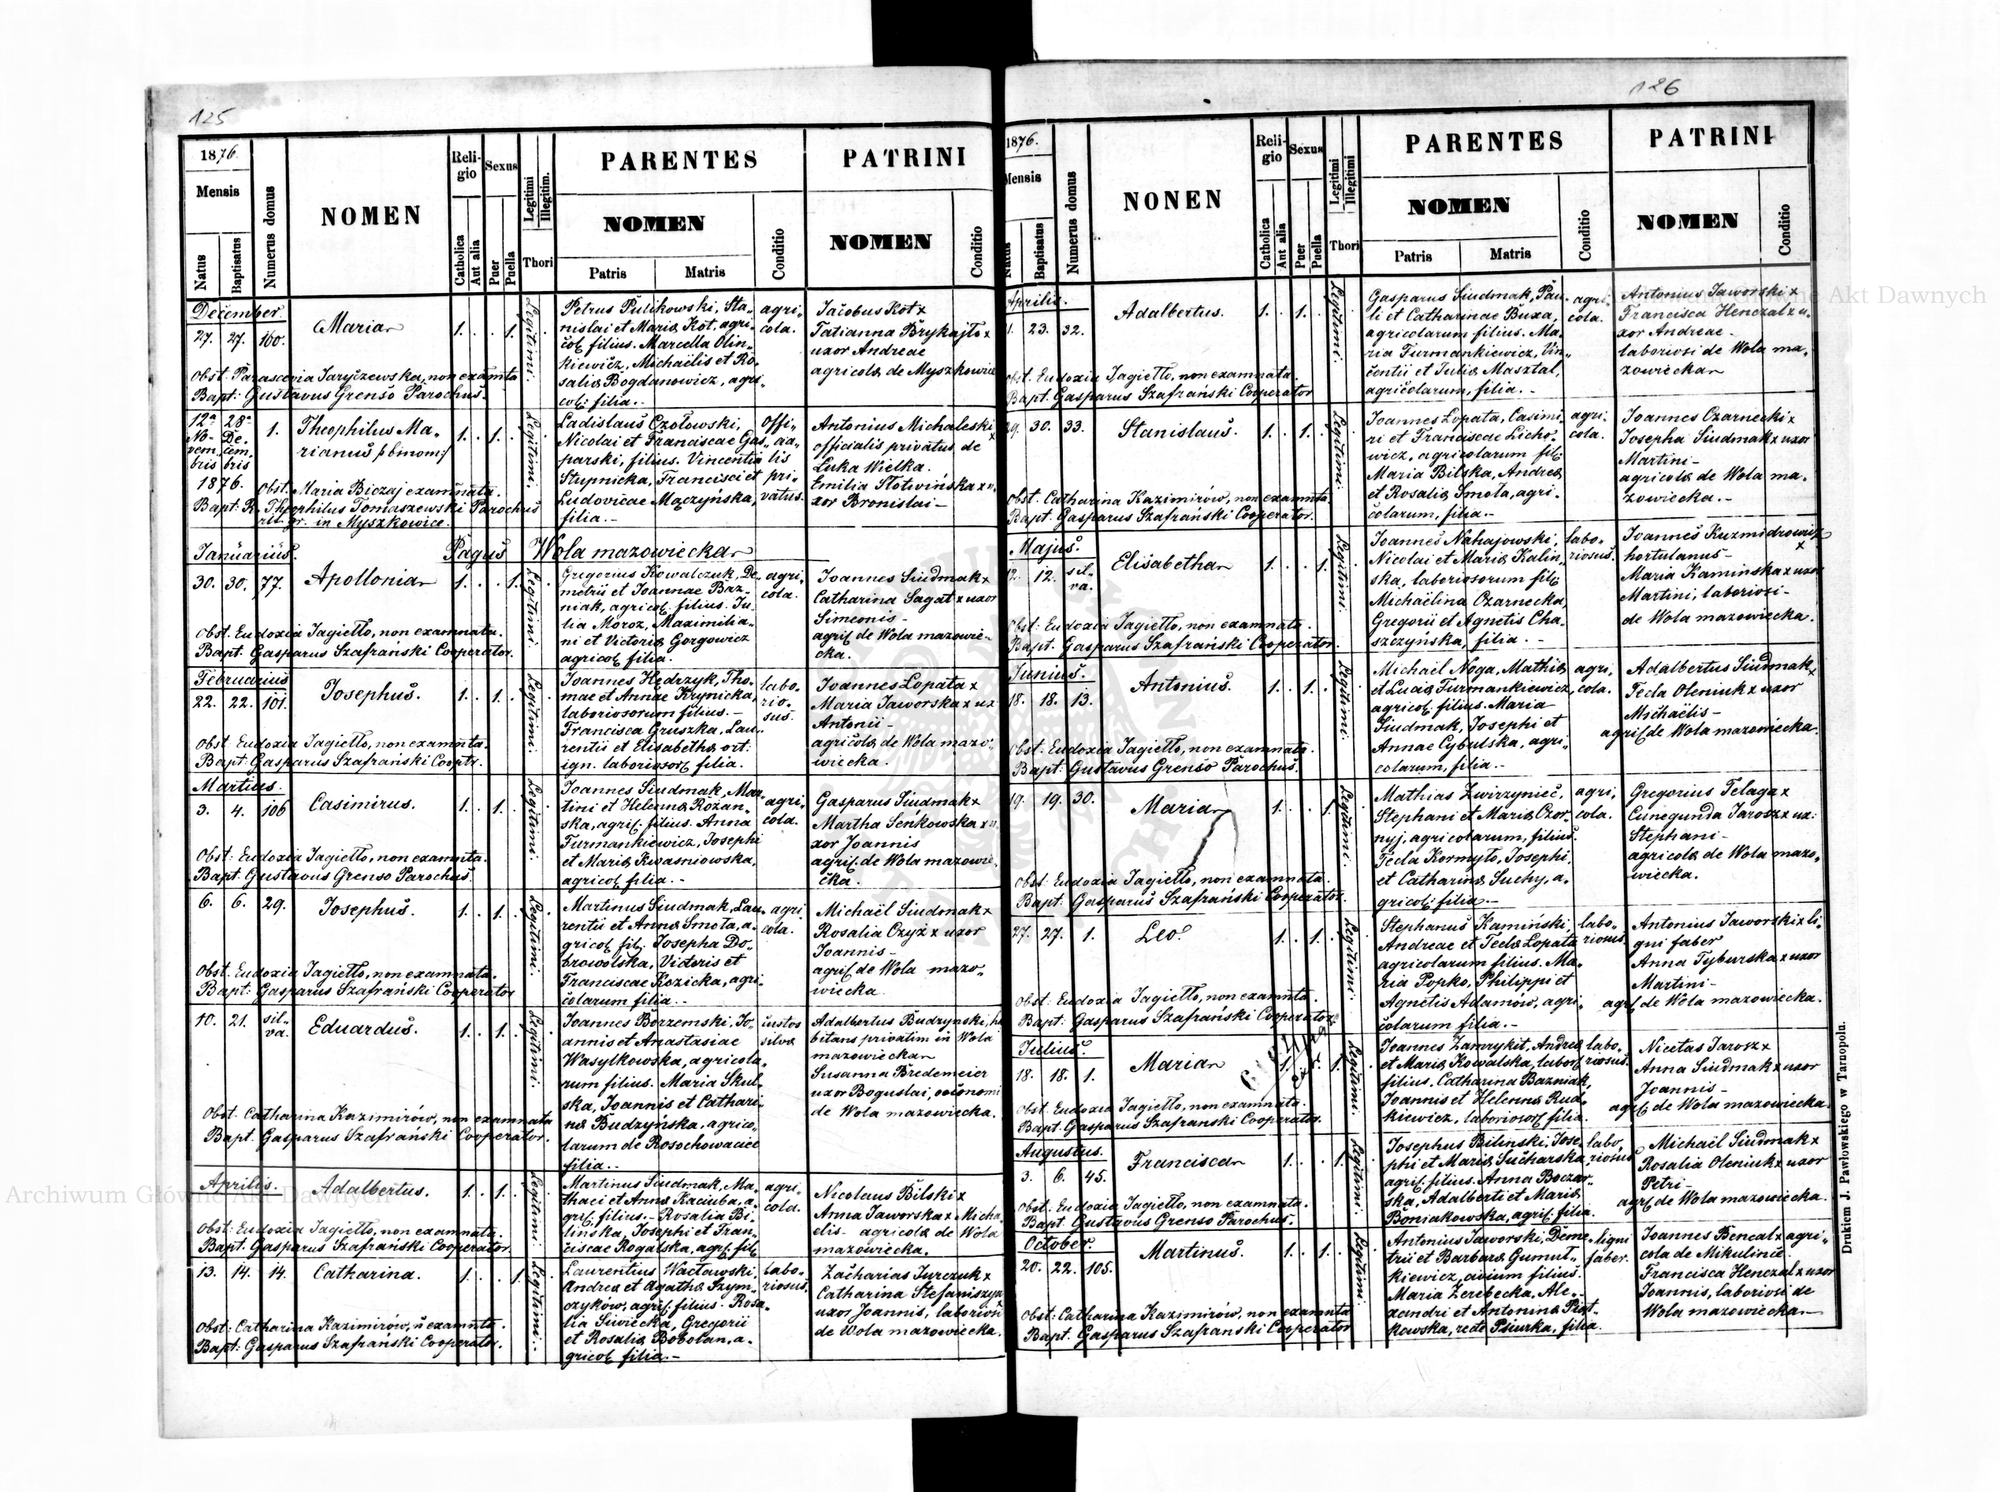 125
1876.
Mensis
Natus
Baptisatus
Numerus domus
NOMEN
Religio
Catholica
Aut alia
Sexus
Puer
Puella
Legitimi
Illegitim.
Thori
PARENTES
NOMEN
Patris
Matris
Conditio
PATRINI
NOMEN
Conditio
December.
27. 27. 160.
Maria
1. 1.
Legitimi.
Petrus Pulikowski, Sta-
nislai et Maria Kot, agri-
col. filius. Marcella Olin-
kiewicz, Michaëlis et Ro-
salia Bogdanowicz, agri-
col: filia.-
agri-
cola.
Jacobus Kot x
Tatianna Brykajło x
uxor Andreae
agricola de Myszkowice
Obst. Parascevia Jaryczewska, non examnta
Bapt: Gustavus Grenso Parochus.
12a 28a
No- De-
vem- cem-
bris bris
1876.
1.
Theophilus Ma-
rianus /:binom:/
1. 1.
Legitimi.
Ladislaus Czołowski,
Nicolai et Franciscae Gas-
parski, filius. Vincentia
Stupnicka, Francisci et
Ludovicae Mączyńska,
filia.-
Offi-
cia-
lis
pri-
vatus.
Antonius Michaleski x
officialis privatus de
Łuka Wielka.
Emilia Słotwińska x u-
xor Bronislai-
Obst. Maria Biczaj examnata.
Bapt: R. Theophilus Tomaszewski Parochus
rit. gr. in Myszkowice.
Januarius. Pagus Wola mazowiecka
30. 30. 77.
Apollonia
1. 1.
Legitimi.
Gregorius Kowalczuk, De-
metrii et Joannae Baz-
niak, agricol. filius. Ju-
lia Moroz, Maximilia-
ni et Victoria Gorgowicz
agricol. filia.
agri-
cola.
Joannes Siudmak x
Catharina Sagat x uxor
Simeonis-
agric. de Wola mazowie-
cka.
Obst: Eudoxia Jagiełło, non examnata.
Bapt. Gasparus Szafrański Cooperator.
Februarius
22. 22. 101.
Josephus.
1. 1.
Legitimi.
Joannes Hędrzyk, Tho-
mae et Annae Krynicka,
laboriosorum filius.-
Francisca Gruszka, Lau-
rentii et Elisabetha ort.
ign. laboriosor. filia.
labo-
rio-
sus.
Joannes Łopata x
Maria Jaworska x ux.
Antonii-
agricola de Wola mazo-
wiecka.
Obst: Eudoxia Jagiełło, non examnta.
Bapt: Gasparus Szafrański Cooptr.
Martius.
3. 4. 106
Casimirus.
1. 1.
Legitimi.
Joannes Siudmak, Mar-
tini et Helena Rozan-
ska, agric. filius. Anna
Furmankiewicz, Josephi
et Maria Kwasniowska,
agricol. filia.-
agri-
cola.
Gasparus Siudmak x
Martha Senkowska x u-
xor Joannis
agric. de Wola mazowie-
cka.
Obst: Eudoxia Jagiełło, non examnta.
Bapt: Gustavus Grenso Parochus.
6. 6. 29.
Josephus.
1. 1.
Legitimi.
Martinus Siudmak, Lau-
rentii et Anna Smoła, a-
gricol. fil. Josepha Do-
browolska, Victoris et
Franciscae Kozicka, agri-
colarum filia.-
agri
cola.
Michaël Siudmak x
Rosalia Czyż x uxor
Joannis-
agric. de Wola mazo-
wiecka
Obst: Eudoxia Jagiełło, non examnata.
Bapt: Gasparus Szafrański Cooperator
10. 21. sil-
va.
Eduardus.
1. 1.
Legitimi.
Joannes Borzemski, Jo-
annis et Anastasiae
Wasylkowska, agricola-
rum filius. Maria Skul-
ska, Joannis et Cathari-
na Budzyńska, agrico-
larum de Rosochowaciec
filia.-
custos
silva
Adalbertus Budzynski, ha
bitans privatim in Wola
mazowiecka
Susanna Bredemeier
uxor Boguslai, oeconomi
de Wola mazowiecka.
Obst. Catharina Kazimirów, non examnata
Bapt: Gasparus Szafrański Cooperator.
Aprilis.
Adalbertus.
1. 1.
Legitimi.
Martinus Siudmak, Ma-
thaei et Anna Kaciuba, a-
gric. filius.- Rosalia Bi-
linska, Josephi et Fran-
ciscae Rogalska, agric. fil.
agri-
cola.
Nicolaus Bilski x
Anna Jaworska x Micha-
elis- agricola de Wola
mazowiecka.
Obst: Eudoxia Jagiełło, non examnata
Bapt: Gasparus Szafrański Cooperator.
13. 14. 14.
Catharina.
1. 1.
Legitimi.
Laurentius Wacławski,
Andrea et Agatha Szym-
czyków, agric. filius. Rosa-
lia Siwiecka, Gregorii
et Rosalia Bobolan, a-
gricol. filia.-
labo-
riosus.
Zacharias Jurczuk x
Catharina Stefaniszyn
uxor Joannis, laboriosi
de Wola mazowiecka.
Obst: Catharina Kazimirów, n examnta.
Bapt: Gasparus Szafrański Cooperator.
126
1876.
Mensis
Natus
Baptisatus
Numerus domus
NONEN
Religio
Catholica
Aut alia
Sexus
Puer
Puella
Legitimi
Illegitimi
Thori
PARENTES
NOMEN
Patris
Matris
Conditio
PATRINI
NOMEN
Conditio
Aprilis.
23. 32.
Adalbertus.
1. 1.
Legitimi.
Gasparus Siudmak, Pau-
li et Catharinae Buxa,
agricolarum filius. Ma-
ria Furmankiewicz, Vin-
centii et Julia Masztal,
agricolarum, filia.-
agri-
cola.
Antonius Jaworski x
Francisca Henczal x u-
xor Andreae-
laboriosi de Wola ma-
zowiecka
Obst. Eudoxia Jagiełło, non examnata.
Bapt. Gasparus Szafrański Cooperator
29. 30. 33.
Stanislaus.
1. 1.
Legitimi.
Joannes Łopata, Casimi-
ri et Franciscae Licho-
wicz, agricolarum fil.
Maria Bilska, Andrea
et Rosalia Smoła, agri-
colarum, filia.-
agri-
cola.
Joannes Czarnecki x
Josepha Siudmak x uxor
Martini-
agricola de Wola ma-
zowiecka.-
Obst. Catharina Kazimirów, non examnta.
Bapt. Gasparus Szafrański Cooperator.
Majus.
12. 12. sil-
va.
Elisabetha
1. 1.
Legitimi.
Joannes Nahajowski,
Nicolai et Maria Kalin-
ska, laboriosorum fil.
Michaëlina Czarnecka,
Gregorii et Agnetis Cha-
szczyńska, filia.-
labo-
riosus.
Joannes Kuzmidrowicz x
hortulanus-
Maria Kaminska x uxor
Martini, laboriosi-
de Wola mazowiecka.
Obst: Eudoxia Jagiełło, non examnata.
Bapt: Gasparus Szafrański Cooperator.
Junius.
18. 18. 13.
Antonius.
1. 1.
Legitimi.
Michaël Noga, Mathia
et Lucia Furmankiewicz,
agricol. filius. Maria
Siudmak, Josephi et
Annae Cybulska, agri-
colarum, filia.-
agri-
cola.
Adalbertus Siudmak x
Tecla Oleniuk x uxor
Michaëlis-
agric. de Wola mazowiecka.
Obst: Eudoxia Jagiełło, non examnata.
Bapt: Gustavus Grenso Parochus.
19. 19. 30.
Maria
1. 1.
Legitimi.
Mathias Zwirzyniec,
Stephani et Maria Czor-
nyj, agricolarum, filius.
Tecla Kormyło, Josephi,
et Catharina Suchy, a-
gricol. filia.-
agri-
cola.
Gregorius Telaga x
Cunegunda Jarosz x ux:
Stephani-
agricola de Wola mazo-
wiecka.
Obst: Eudoxia Jagiełło, non examnata.
Bapt. Gasparus Szafrański Cooperator.
27. 27. 1.
Leo.
1. 1.
Legitimi.
Stephanus Kamiński,
Andreae et Tecla Łopata
agricolarum filius. Ma-
ria Popko, Philippi et
Agnetis Adamów, agri-
colarum filia.-
labo-
riosus.
Antonius Jaworski x li-
gni faber
Anna Tyburska x uxor
Martini-
agric. de Wola mazowiecka.
Obst: Eudoxia Jagiełło, non examnta.
Bapt. Gasparus Szafrański Cooperator
Julius.
18. 18. 1.
Maria
1. 1.
Legitimi.
Joannes Zamrykit, Andrea
et Maria Kowalska, labor.
filius. Catharina Bazniak,
Joannis et Helenna Rud-
kiewicz, laboriosor. filia.
labo-
riosus.
Nicetas Jarosz x
Anna Siudmak x uxor
Joannis-
agric. de Wola mazowiecka.
Obst: Eudoxia Jagiełło, non examnata.
Bapt. Gasparus Szafrański Cooperator.
Augustus.
3. 6. 45.
Francisca
1. 1.
Legitimi.
Josephus Bilinski, Jose-
phi et Maria Sucharska,
agric. filius. Anna Boczar-
ska, Adalberti et Maria
Boniakowska, agric. filia.
labo-
riosus
Michaël Siudmak x
Rosalia Oleniuk x uxor
Petri-
agric. de Wola mazowiecka.
Obst: Eudoxia Jagiełło, non examnata.
Bapt: Gustavus Grenso Parochus.
October.
20. 22. 105.
Martinus.
1. 1.
Legitimi.
Antonius Jaworski, Deme-
trii et Barbara Gumuł-
kiewicz, civium filius.
Maria Zerebecka, Ale-
xandri et Antonina Piot-
kowska, recte Psiurka, filia.
ligni
faber.
Joannes Bencal x agri-
cola de Mikulińce.
Francisca Henczal x uxor
Joannis, laboriosi de
Wola mazowiecka
Obst: Catharina Kazimirów, non examnta
Bapt: Gasparus Szafranski Cooperator
Drukiem J. Pawłowskiego w Tarnopolu.
Archiwum Główne Akt Dawnych
Archiwum Główne Akt Dawnych